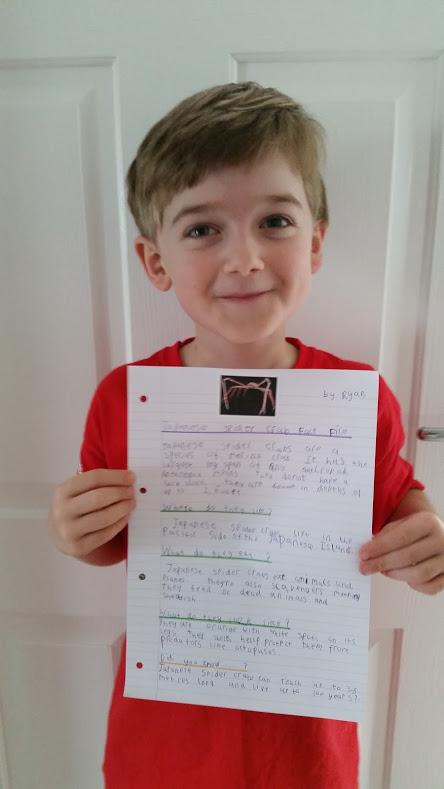 by Ryan
Japanese spider crab Fact File
Japanese spider crabs are a
species of marine crab. It has the
leg span of any
have a
they are found in depths of
up to
Where do they live?
Japanese spider crabs live in the
Pacific side of the Japanese Island.
What do they eat?
Japanese spider crabs eat animals and
Plants. they're also scavengers meaning
they feed on dead animals and
What do they look like?
They are orange with white spots on its
legs. They will help protect them from
predators like octopuses.
Did you know ?
Japanese spider crabs can reach up to 3.8
metres long and live up to 100 years?